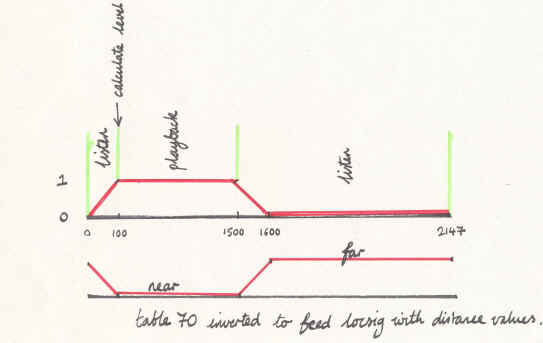 calculate level
listen
playback
listen
1
0
0 100 1500 1600 2147
far
near
table 70 inverted to feed locsig with distance values.